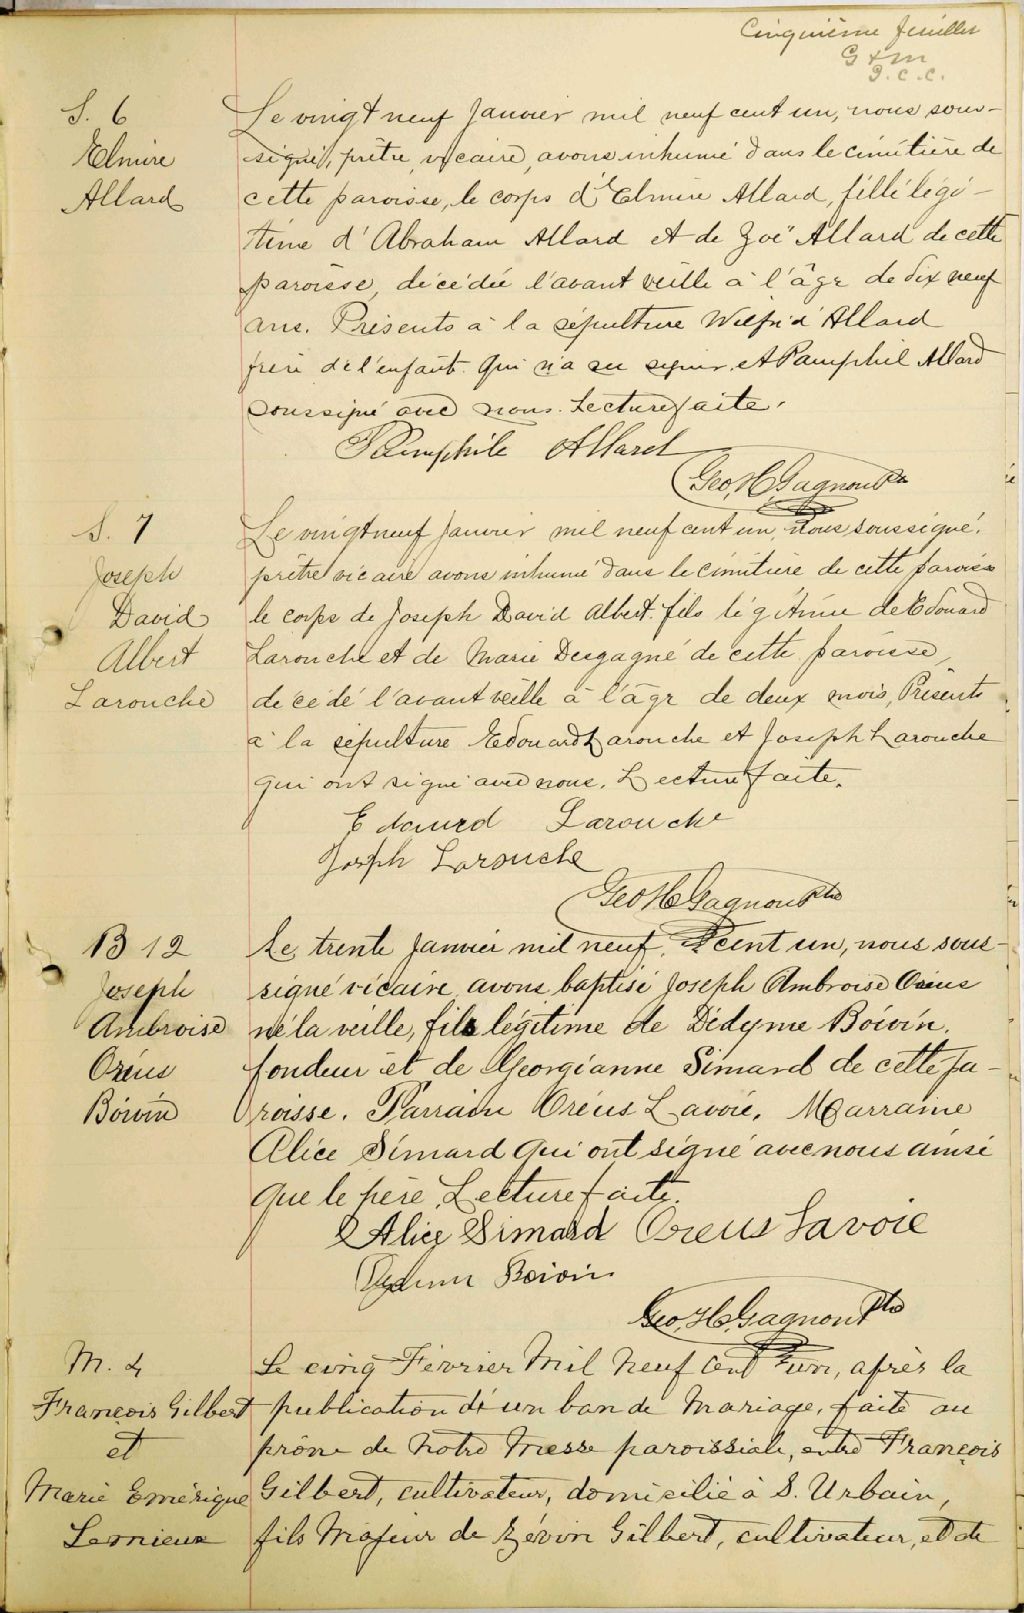 Cinquième feuillet
G & M
P. C. C.
S. 6
Elmire
Allard
Le vingt neuf Janvier mil neuf cent un, nous sous-
signé, prêtre, vicaire, avons inhumé dans le cimitière de
cette paroisse, le corps d'Elmire Allard, fille légi-
time d'Abraham Allard et de Zoë Allard de cette
paroisse, décédée l'avant veille à l'âge de dix neuf
ans. Présents à la sépulture Wilfrid Allard
frère de l'enfant qui n'a su signer et Pamphil Allard
soussigné avec nous. Lecture faite.
Pamphile Allard
Geo. H. Gagnon Ptre
S. 7
Joseph
David
Albert
Larouche
Le vingt neuf Janvier mil neuf cent un, nous soussigné,
prêtre vicaire avons inhumé dans le cimitière de cette paroisse
le corps de Joseph David Albert fils légitime de Edouard
Larouche et de Marie Desgagné de cette paroisse,
décédé l'avant veille à l'âge de deux mois, Présents
à la sépulture Edouard Larouche et Joseph Larouche
qui ont signé avec nous. Lecture faite.
Edouard Larouche
Joseph Larouche
Geo H Gagnon Ptre
B 12
Joseph
Ambroise
Oréus
Boivin
Le trente Janvier mil neuf cent un, nous sous-
signé vicaire avons baptisé Joseph Ambroise Oréus
né la veille, fils légitime de Didyme Boivin,
fondeur et de Georgianne Simard de cette pa-
roisse. Parrain Oréus Lavoie, Marraine
Alice Simard qui ont signé avec nous ainsi
que le père. Lecture faite.
Alice Simard Oreus Lavoie
Boivin
Geo. H. Gagnon Ptre
M. 4
François Gilbert
et
Marie Emérique
Lemieux
Le cinq Février Mil Neuf Cent un, après la
publication d'un ban de Mariage, faite au
prône de Notre Messe paroissiale, entre François
Gilbert, cultivateur, domicilié à S. Urbain,
fils Majeur de Zévin Gilbert, cultivateur, et de